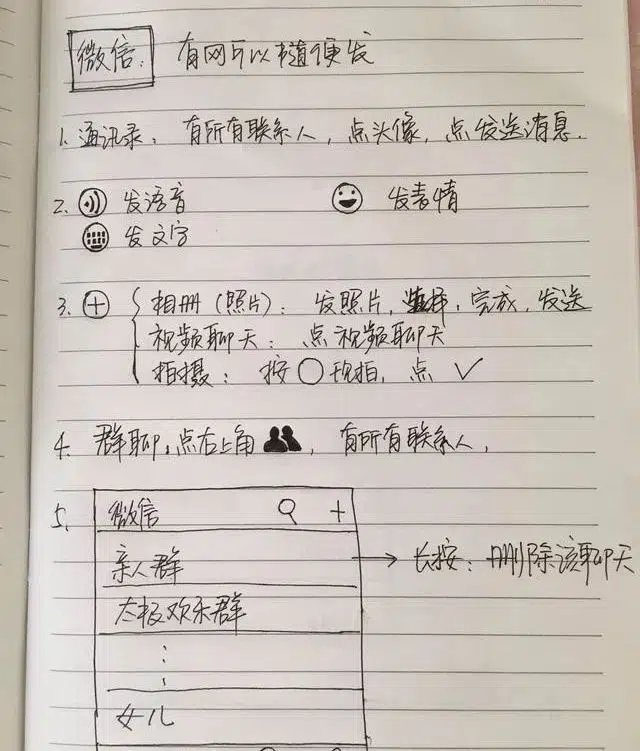 微信: 有网可以随便发
1. 通讯录: 有所有联系人, 点头像, 点发送消息.
2. 发语音 发表情
发文字
3. 相册 (照片): 发照片, 选择, 完成, 发送
视频聊天: 点视频聊天
拍摄: 按 现拍, 点 ✓
4. 群聊, 点右上角 , 有所有联系人,
5. 微信 +
亲人群 → 长按: 删除该聊天
太极欢乐群
女儿